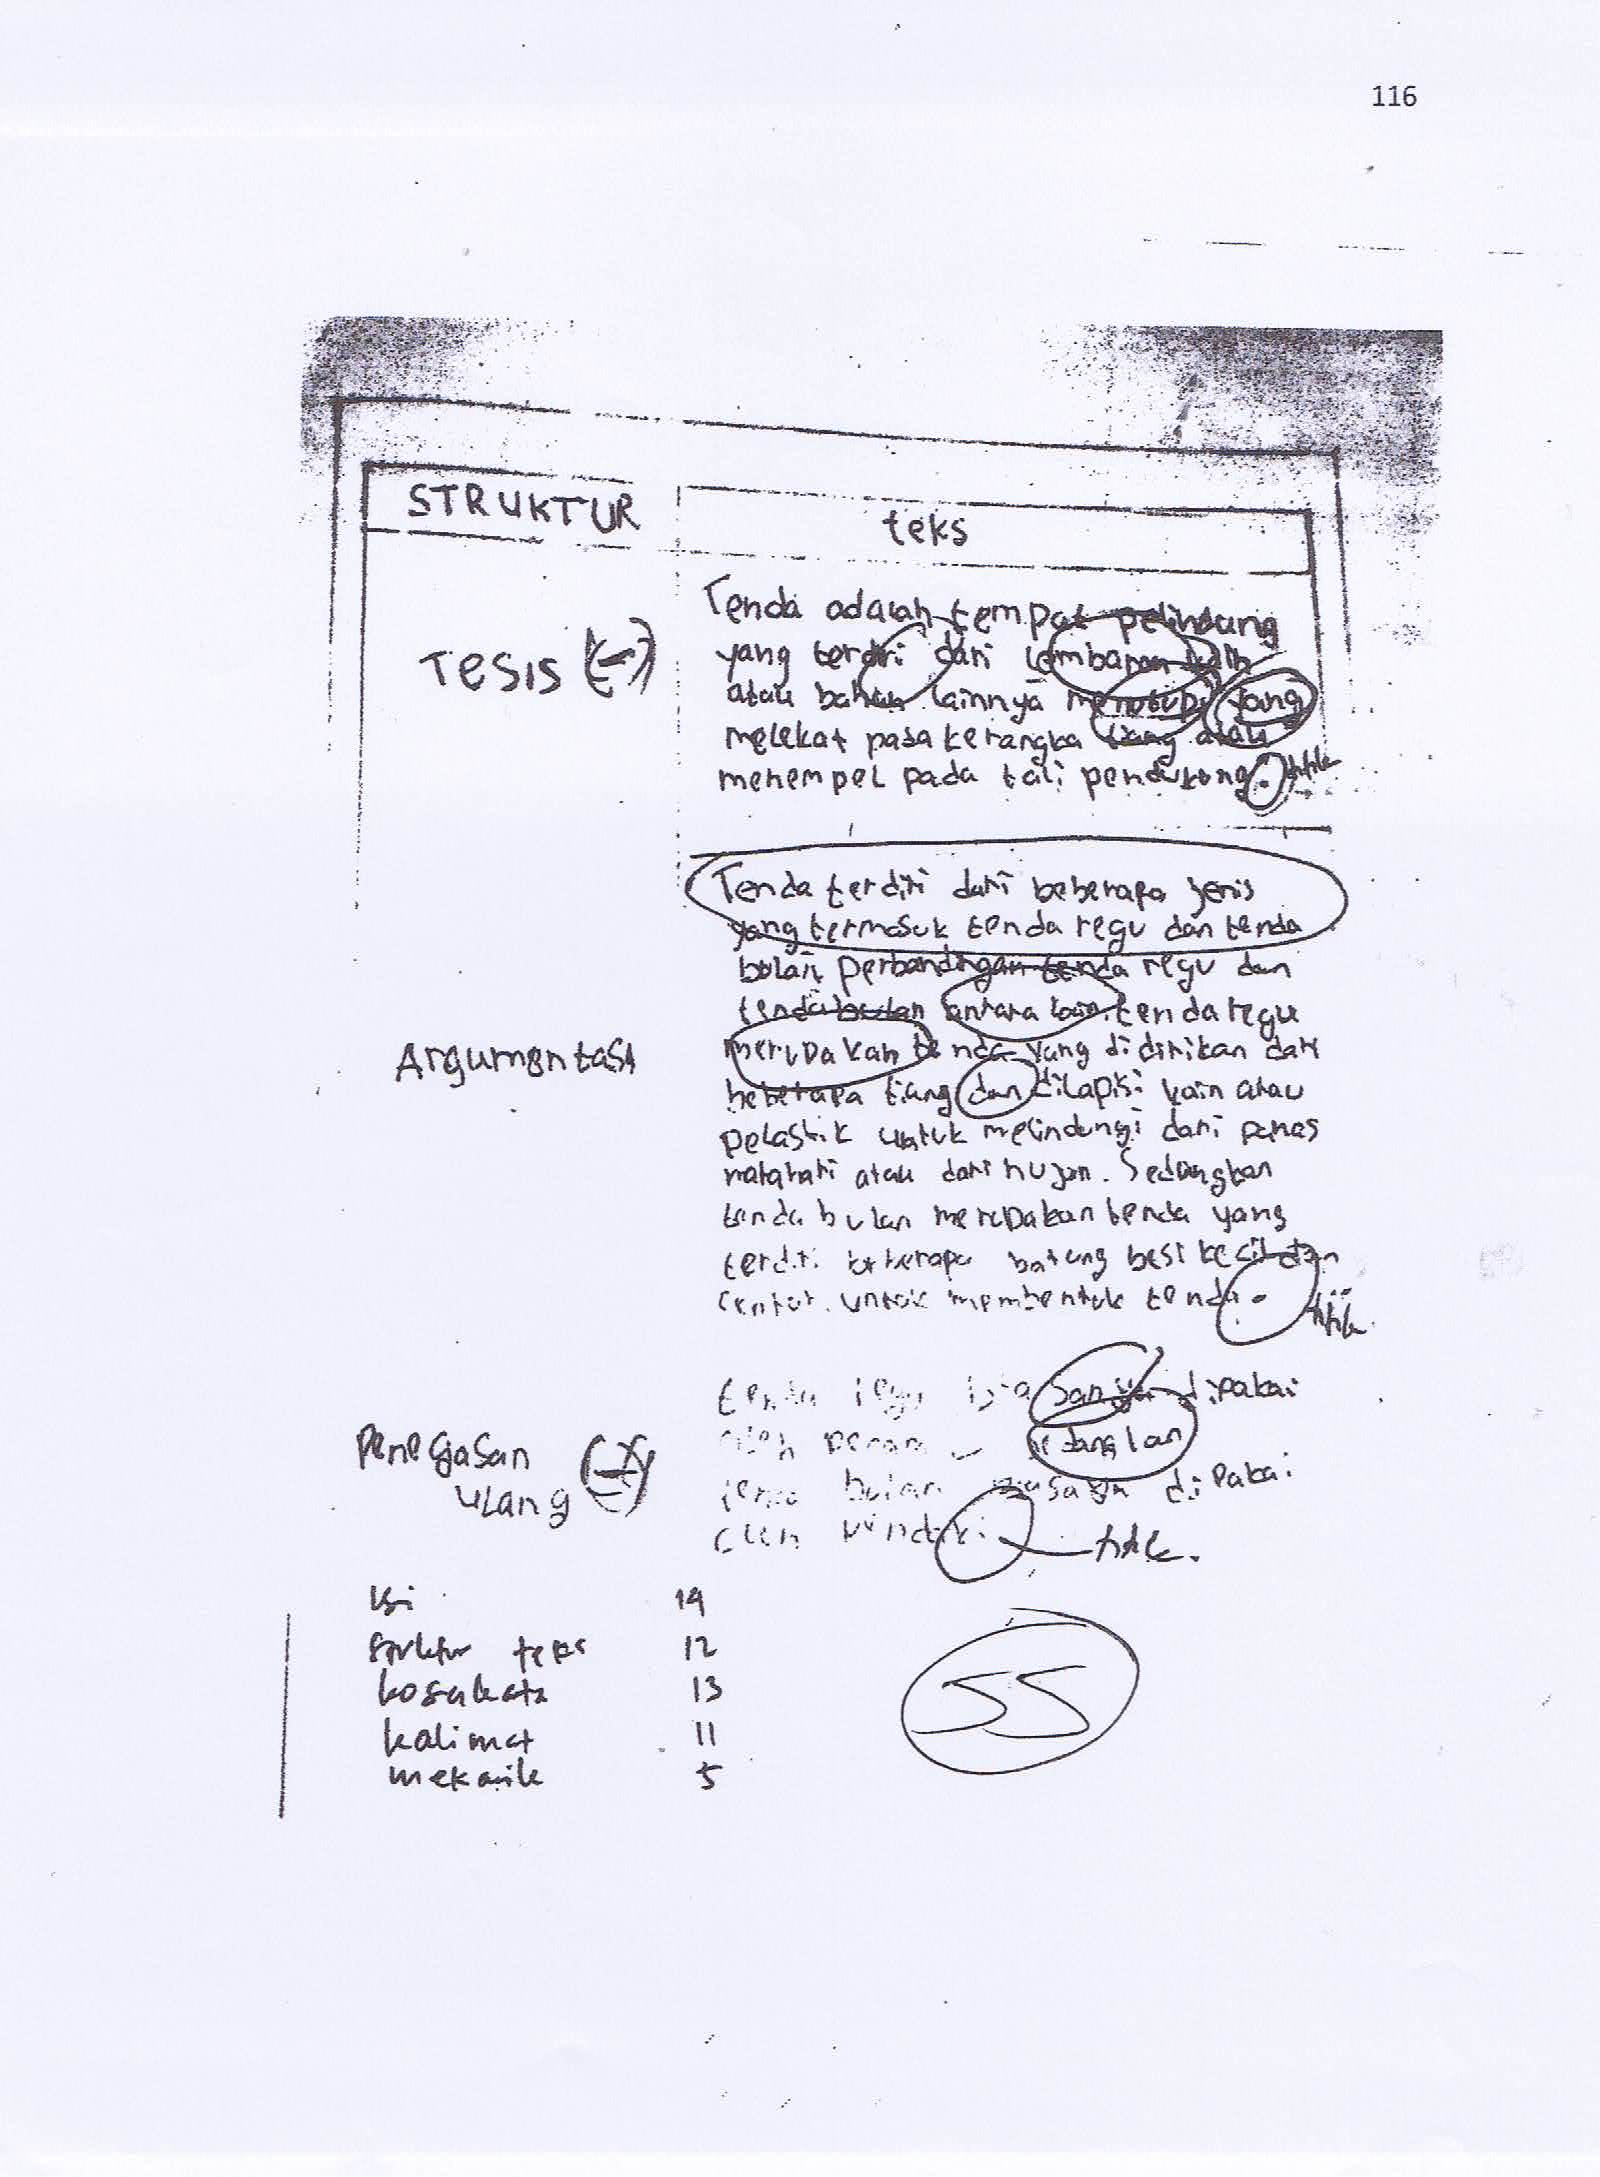 116
STRUKTUR
teks
TESIS (-)
Tenda adalah tempat pelindung
yang terdiri dari lembaran kain
atau bahan lainnya menutupi yang
melekat pada kerangka tiang atau
menempel pada tali pendukung. titik
Argumentasi
Tenda terdiri dari beberapa jenis
yang termasuk tenda regu dan tenda
bulan, perbandingan tenda regu dan
tenda bulan antara lain. tenda regu
merupakan tenda yang didirikan dari
beberapa tiang dan dilapisi kain atau
pelastik untuk melindungi dari panas
matahari atau dari hujan. Sedangkan
tenda bulan merupakan tenda yang
terdiri beberapa batang besi kecil dan
untuk membentuk tenda. titik.
Penegasan
ulang (-)
tenda regu dipakai
oleh
bulan dipakai
titik.
Isi 14
Struktur teks 12
kosakata 13
kalimat 11
mekanik 5
55